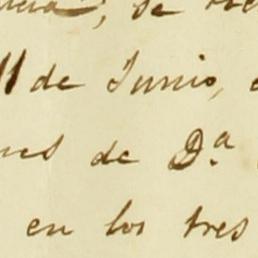 se
11 de Junio,
de D.ª
en los tres